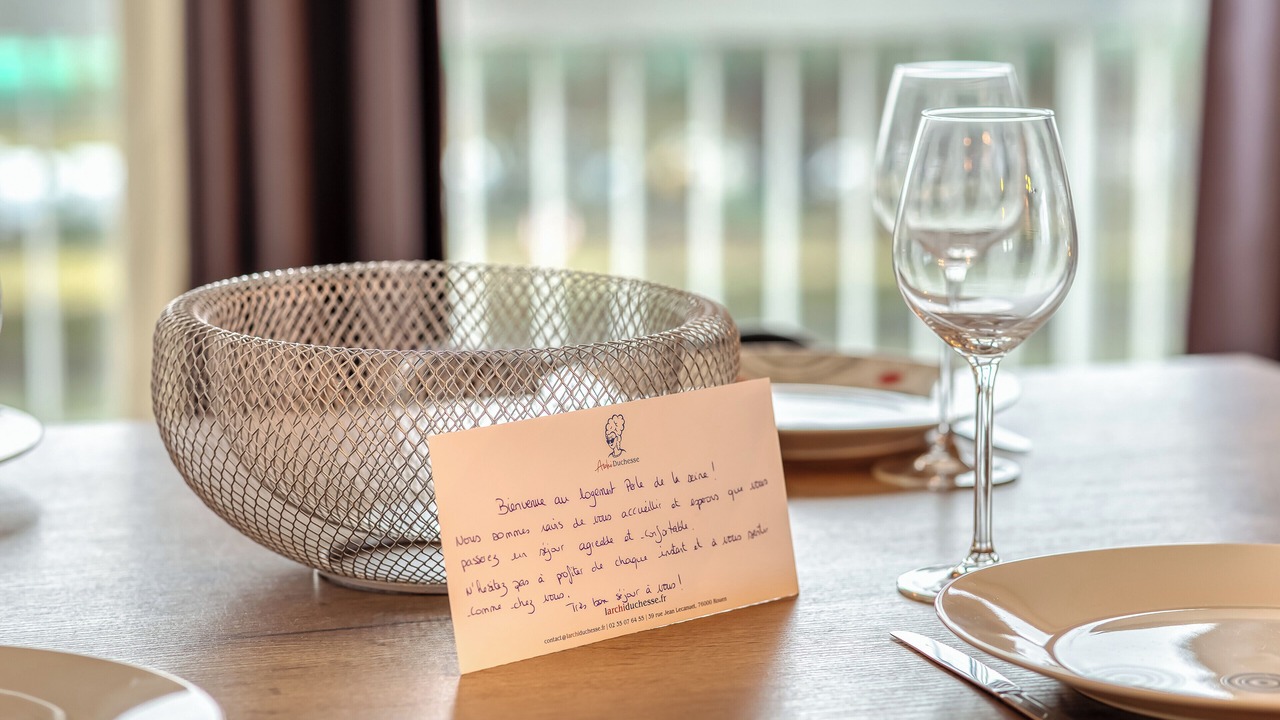 ArchiDuchesse
Bienvenue au logement Pole de la seine !
Nous sommes ravis de vous accueillir et espérons que vous
passerez un séjour agréable et confortable.
N'hésitez pas à profiter de chaque instant et à vous sentir
comme chez vous.
Très bon séjour à vous !
larchiduchesse.fr
contact@larchiduchesse.fr | 02 35 07 64 55 | 39 rue Jean Lecanuet, 76000 Rouen